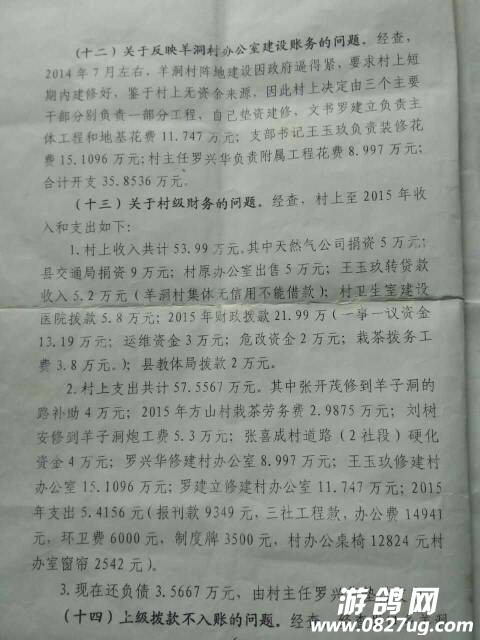 (十二)关于反映羊洞村办公室建设账务的问题。经查，
2014年7月左右，羊洞村阵地建设因政府逼得紧，要求村上短
期内建修好，鉴于村上无资金来源，因此村上决定由三个主要
干部分别负责一部分工程，自己垫资建修，文书罗建立负责主
体工程和地基花费11.747万元；支部书记王玉玖负责装修花
费15.1096万元；村主任罗兴华负责附属工程花费8.997万元；
合计开支35.8536万元。
(十三)关于村级财务的问题。经查，村上至2015年收
入和支出如下：
1.村上收入共计53.99万元，其中天然气公司捐资5万元；
县交通局捐资9万元；村原办公室出售5万元；王玉玖转贷款
收入5.2万元(羊洞村集体无信用不能借款)；村卫生室建设
医院拨款5.8万元；2015年财政拨款21.99万(一事一议资金
13.19万元；运维资金3万元；危改资金2万元；栽茶拨务工
费3.8万元。)；县教体局拨款2万元。
2.村上支出共计57.5567万元。其中张开茂修到羊子洞的
路补助4万元；2015年方山村栽茶劳务费2.9875万元；刘树
安修到羊子洞炮工费5.3万元；张喜成村道路(2社段)硬化
资金4万元；罗兴华修建村办公室8.997万元；王玉玖修建村
办公室15.1096万元；罗建立修建村办公室11.747万元；2015
年支出5.4156元(报刊款9349元，三社工程款，办公费14941
元，环卫费6000元，制度牌3500元，村办公桌椅12824元村
办室窗帘2542元)。
3.现在还负债3.5667万元，由村主任罗兴
(十四)上级拨款不入账的问题。经查，
游鸽网
www.0827ug.com